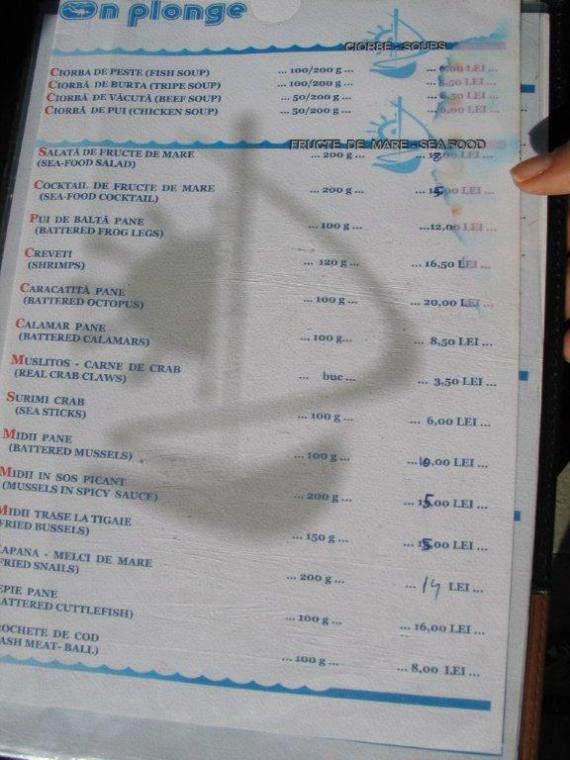 On plonge
CIORBE - SOUPS
CIORBA DE PESTE (FISH SOUP) ... 100/200 g ... ... 6,00 LEI ...
CIORBĂ DE BURTA (TRIPE SOUP) ... 100/200 g ... ... 8,50 LEI ...
CIORBĂ DE VĂCUTĂ (BEEF SOUP) ... 50/200 g ... ... 6,50 LEI ...
CIORBĂ DE PUI (CHICKEN SOUP) ... 50/200 g ... 6,00 LEI ...
FRUCTE DE MARE - SEA FOOD
SALATĂ DE FRUCTE DE MARE ... 200 g ... ... 18,00 LEI ...
(SEA-FOOD SALAD)
COCKTAIL DE FRUCTE DE MARE ... 200 g ... ... 15,00 LEI ...
(SEA-FOOD COCKTAIL)
PUI DE BALTĂ PANE ... 100 g ... ...12,00 LEI ...
(BATTERED FROG LEGS)
CREVETI ... 120 g ... ... 16,50 LEI ...
(SHRIMPS)
CARACATITĂ PANE ... 100 g ... ... 20,00 LEI ...
(BATTERED OCTOPUS)
CALAMAR PANE ... 100 g... ... 8,50 LEI ...
(BATTERED CALAMARS)
MUSLITOS - CARNE DE CRAB ... buc ... ... 3,50 LEI ...
(REAL CRAB CLAWS)
SURIMI CRAB ... 100 g ... ... 6,00 LEI ...
(SEA STICKS)
MIDII PANE ... 100 g ... ...10,00 LEI ...
(BATTERED MUSSELS)
MIDII IN SOS PICANT ... 200 g ... ... 15,00 LEI ...
(MUSSELS IN SPICY SAUCE)
MIDII TRASE LA TIGAIE ... 150 g ... ... 15,00 LEI ...
FRIED BUSSELS)
APANA - MELCI DE MARE ... 200 g ... ... 14 LEI ...
FRIED SNAILS)
EPIE PANE ... 100 g ... ... 16,00 LEI ...
ATTERED CUTTLEFISH)
ROCHETE DE COD ... 100 g ... ... 8,00 LEI ...
ASH MEAT- BALL)